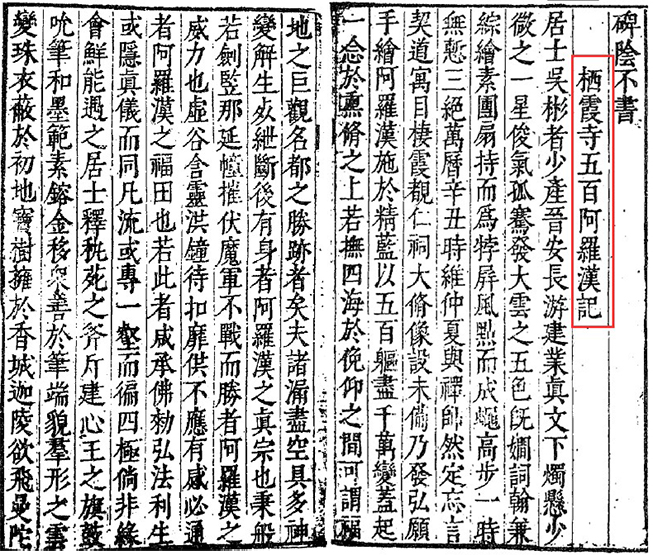 碑陰不書
栖霞寺五百阿羅漢記
居士吳彬者少產晉安長游建業真文下燭懸少
微之一星俊氣孤騫發大雲之五色旣嫺詞翰兼
綜繪素團扇持而為㹀屏風點而成蠅高步一時
無慙三絕萬曆辛丑時維仲夏與禪師然定忘言
契道寓目棲霞覩仁祠大脩像設未備乃發弘願
手繪阿羅漢施於精藍以五百軀盡千萬變蓋起
一念於熏脩之上若撫四海於俛仰之間可謂福
地之巨觀名都之勝跡者矣夫諸漏盡空具多神
變解生死紲斷後有身者阿羅漢之真宗也秉般
若劍豎那延幢摧伏魔軍不戰而勝者阿羅漢之
威力也虛谷含靈洪鐘待扣靡供不應有感必通
者阿羅漢之福田也若此者咸承佛勑弘法利生
或隱真儀而同凡流或專一壑而徧四極倘非緣
會鮮能遇之居士釋秇苑之斧斤建心王之旗鼓
吮筆和墨範素鎔金移眾善於筆端貌羣形之雲
變珠衣蔽於初地寶樹擁於香城迦陵欲飛曼陀